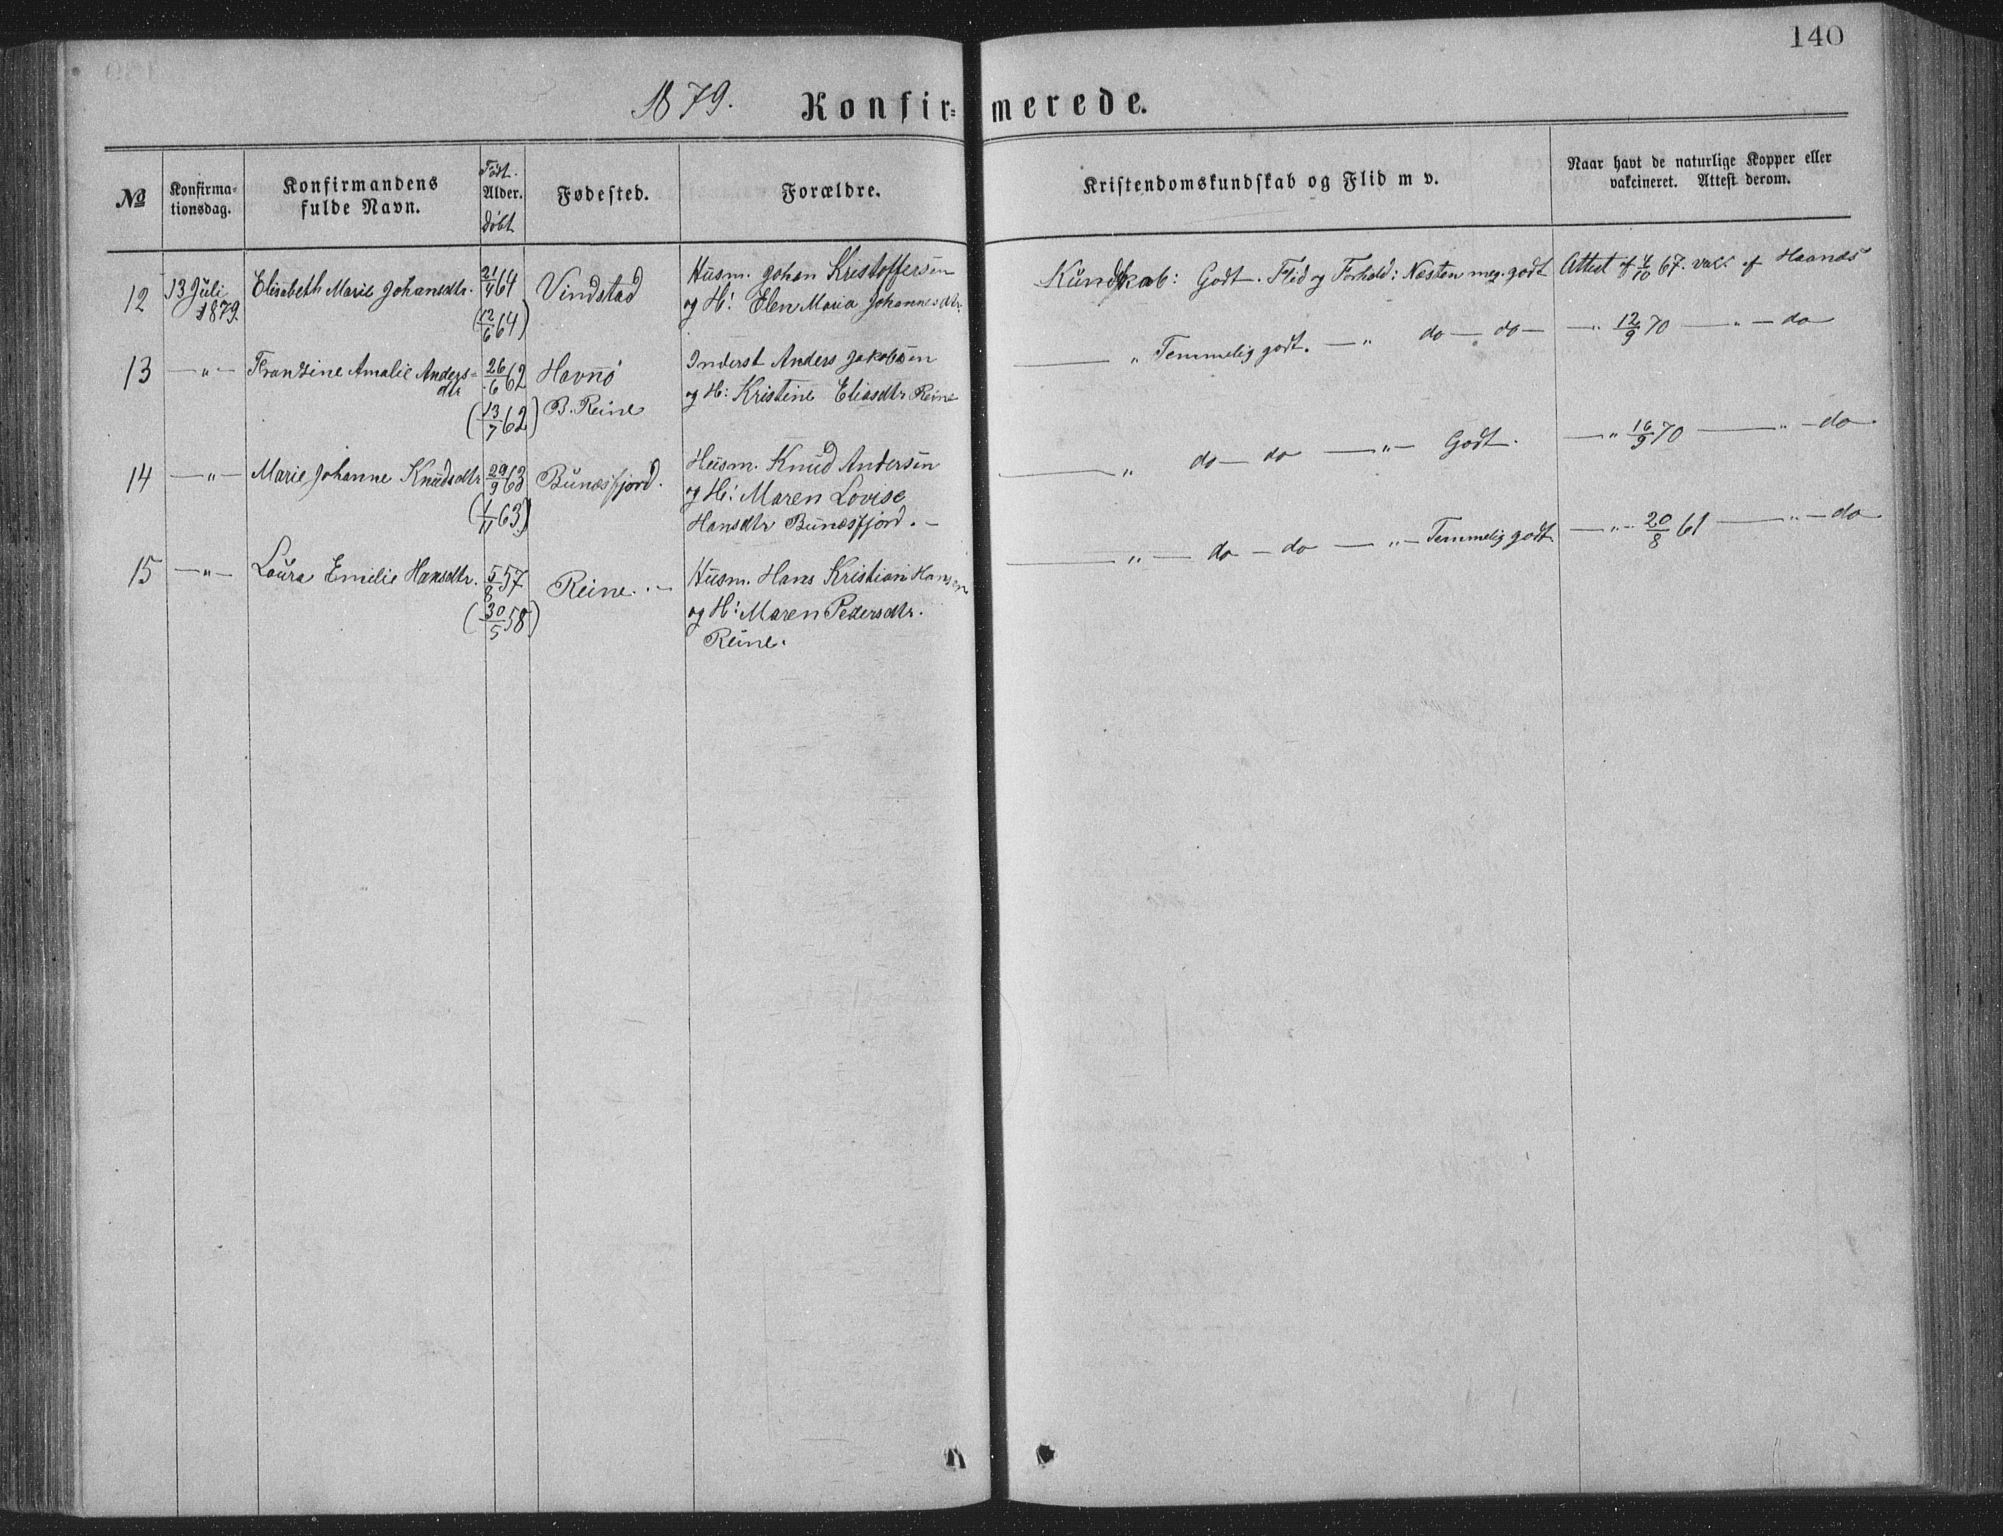 140
1879. Konfir= merede.
№ Konfirma-tionsdag. Konfirmandens fulde Navn. Født. Alder. Døbt Fødested. Forældre. Kristendomskundskab og Flid m v. Naar havt de naturlige Kopper eller vakcineret. Attest derom.
12 13 Juli 1879. Elisabeth Marie Johansdtr. 21/4 64 (12/6 64) Vindstad
Husm. Johan Kristoffersen
og H: Elen Maria Johannesdtr.
Kundskab: Godt. Flid og Forhold: Næsten meg. godt Attest 67. vakc. af Haanes
13 — " — Frantzine Amalie Anders=
dtr 26/6 62 (13/7 62) Havnø
B. Reine
Inderst Anders Jakobsen
og H: Kristine Eliasdtr Reine
— " Temmelig godt. — " do — do — — " 12/9 70 — " — do
14 — " — Marie Johanne Knudsdtr 29/9 63 (1/11 63) Bunæsfjord.
Husm. Knud Andersen
og H: Maren Lovise
Hansdtr Bunæsfjord. —
— " do — do — " — Godt. — " 16/9 70 — " — do
15 — " — Laura Emilie Hansdtr. 5/8 57 (30/5 58) Reine. . —
Husm. Hans Kristian Hansen
og H: Maren Pedersdtr.
Reine.
— " — do — do — " — Temmelig godt — " — 20/8 61 — " — do